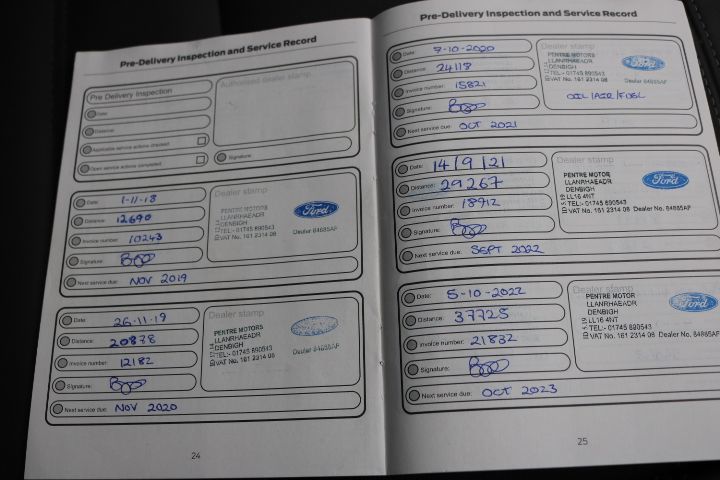 Pre-Delivery Inspection and Service Record
Pre Delivery Inspection
Authorised dealer stamp
Date:
Distance:
Applicable service actions checked:
Open service actions completed:
Signature:
Date: 1-11-18
Distance: 12690
Invoice number: 10243
Signature:
Next service due: NOV 2019
Dealer stamp
PENTRE MOTORS
LLANRHAEADR
DENBIGH
TEL:- 01745 890543
VAT No. 161 2314 08
Ford
Dealer 84685AF
Date: 26-11-19
Distance: 20878
Invoice number: 12182
Signature:
Next service due: NOV 2020
Dealer stamp
PENTRE MOTORS
LLANRHAEADR
DENBIGH
TEL:- 01745 890543
VAT No. 161 2314 08
Dealer 84685AF
24
Pre-Delivery Inspection and Service Record
Date: 7-10-2020
Distance: 24118
Invoice number: 15821
Signature:
Next service due: OCT 2021
Dealer stamp
PENTRE MOTORS
LLANRHAEADR
DENBIGH
TEL:- 01745 890543
VAT No. 161 2314 08
Ford
Dealer 84685AF
OIL/AIR/FUEL
Date: 14/9/21
Distance: 29267
Invoice number: 18912
Signature:
Next service due: SEPT 2022
Dealer stamp
PENTRE MOTOR
LLANRHAEADR
DENBIGH
LL16 4NT
TEL:- 01745 890543
VAT No. 161 2314 08 Dealer No. 84685AF
Ford
Date: 5-10-2022
Distance: 37725
Invoice number: 21832
Signature:
Next service due: OCT 2023
Dealer stamp
PENTRE MOTOR
LLANRHAEADR
DENBIGH
LL16 4NT
TEL:- 01745 890543
VAT No. 161 2314 08 Dealer No. 84685AF
Ford
25